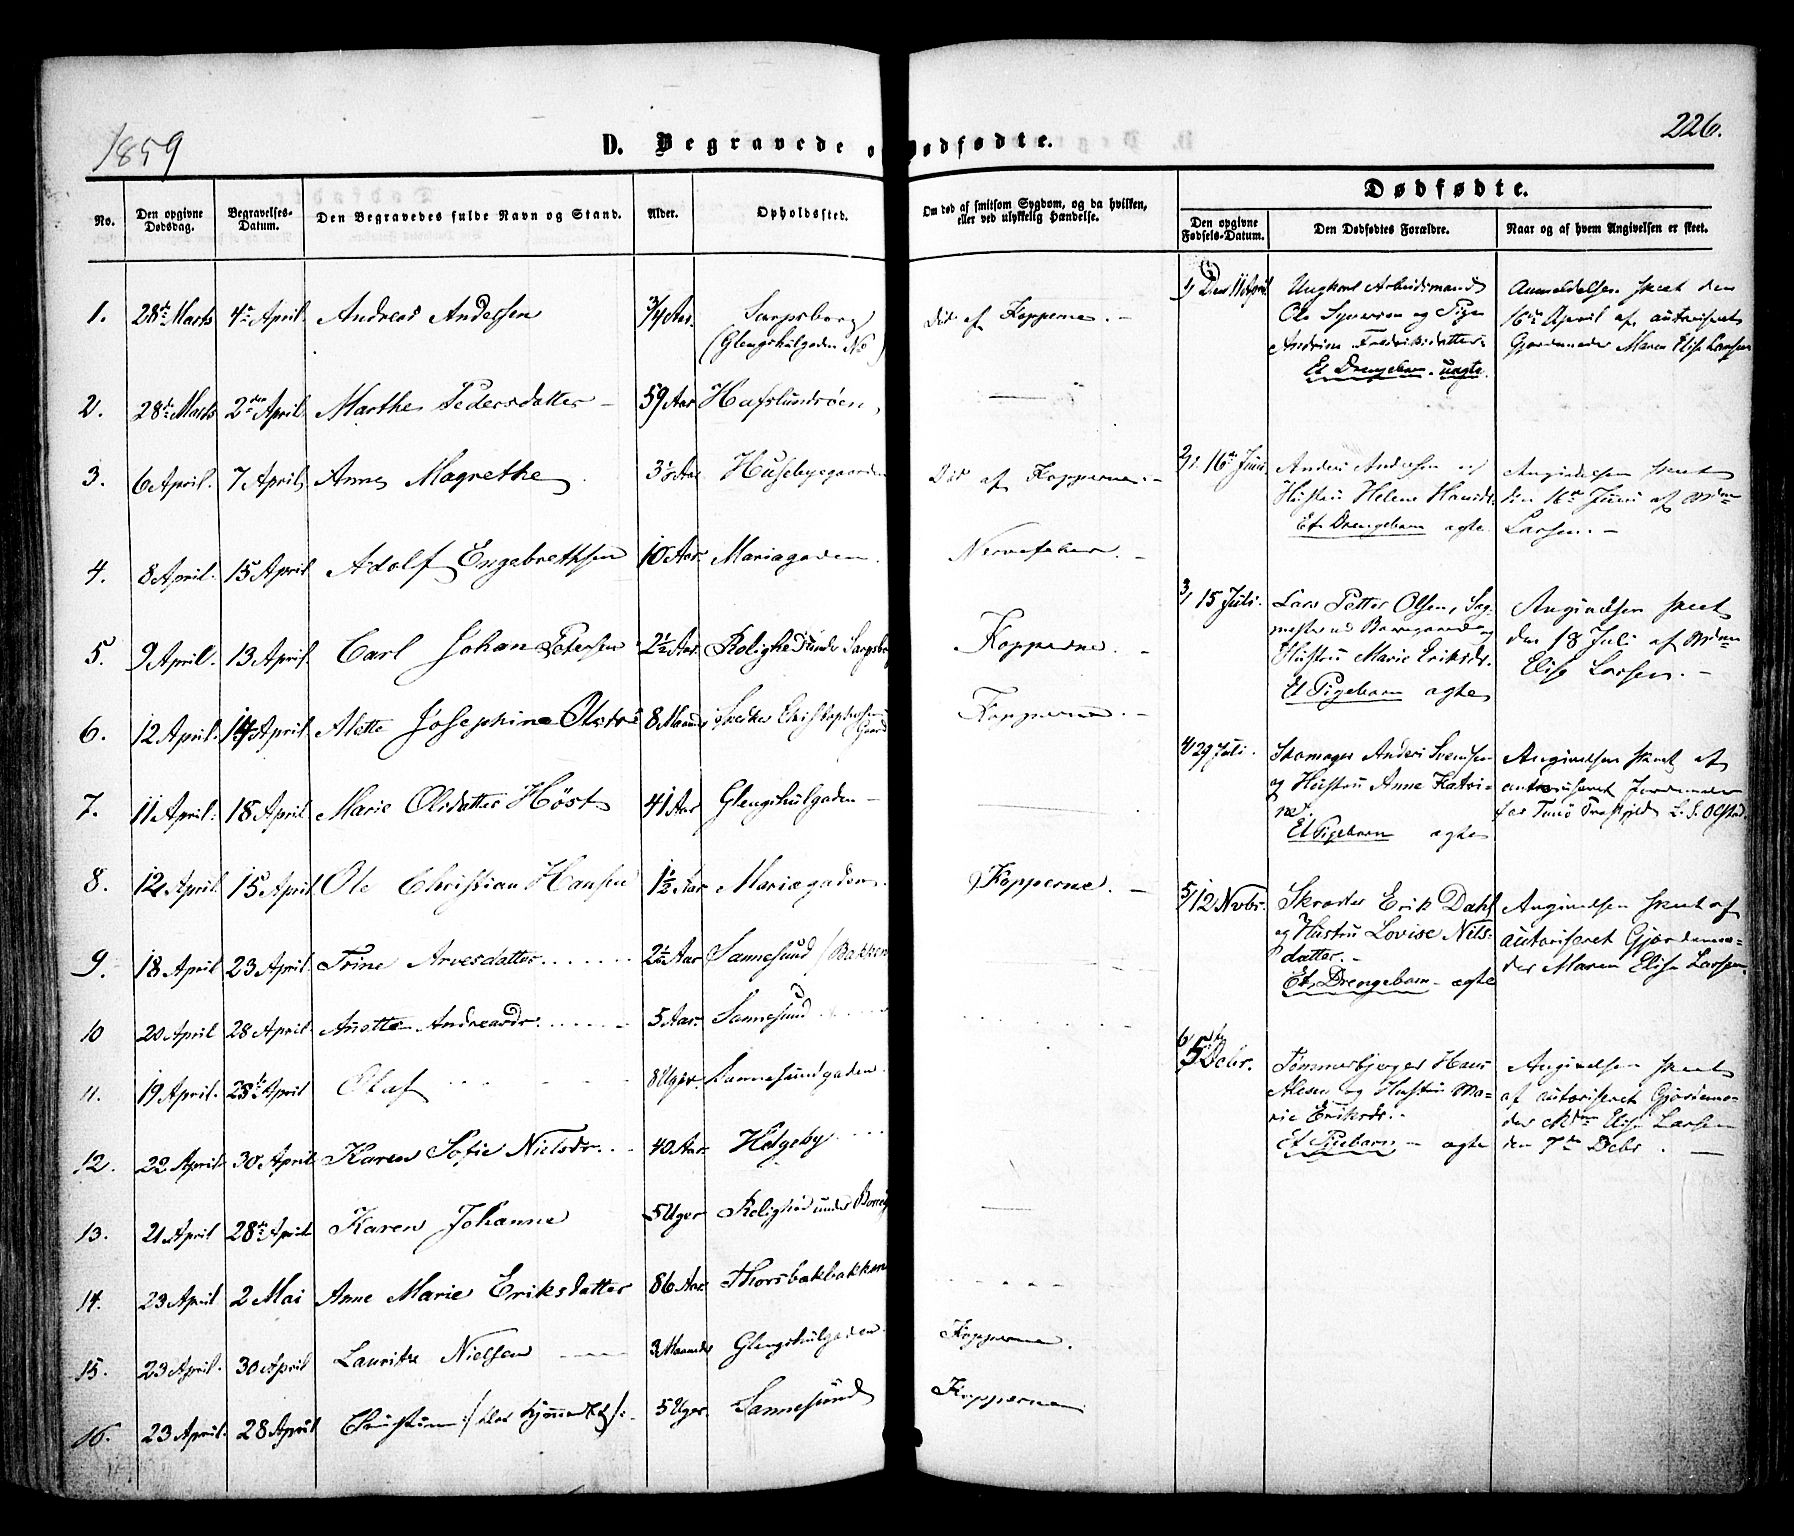 1859
D. Begravede o
No. Den opgivne Dødsdag. Begravelses-Datum. Den Begravedes fulde Navn og Stand. Alder. Opholdssted.
1. 28de Marts 4de April. Andreas Andersen 3/4 Aar. Sarpsborg
(Glengshulgaden No )
2. 28de Marts 2den April Marthe Pedersdatter – 59 Aar Hafslundsøen,
3. 6 April. 7 April, Anne Magrethe 3½ Aar Husebyegaarden
4. 8 April. 15 April Adolf Engebrethsen 10 Aar. Mariagaden.
5. 9 April. 13 April. Carl Johan Petersen 2½ Aar. Rolighed under Sarpsborg
6. 12 April. 14 April Alette Josephine Olsdtr 8 Maaneder Christophersens
Gaard
7. 11 April. 18 April Marie Olsdatter Høst 41 Aar Glengshulgaden –
8. 12 April 15 April Ole Christian Hansen 1½ Aar Mariagaden.
9. 18 April 23 April. Trine Arvesdatter 2½ Aar Sannesund / Bakken
10 20 April 28 April. Anette Andreasdr. 5 Aar. Sannesund
11. 19 April. 28de April Olaf 8 Uger. Sannesundgaden
12. 22 April 30 April Karen Sofie Nielsdr. 40 Aar. Helgeby
13. 21 April 28de April Karen Johanne 5 Uger Rolighed under Borregd
14. 23 April 2 Mai Anne Marie Eriksdatter 86 Aar. Thorsbakbakken
15. 23 April. 30 April Lauritze Nielsen 3 Maaneder Glengshulgaden.
16. 23 April. 28 April Christian 5 Uger. Sannesund
ødfødte.
226.
Om død af smitsom Sygdom, og da hvilken,
eller ved ulykkelig Hændelse.
Død af Kopperne. –
Død af Kopperne. –
Nervefeber. –
Kopperne. –
Kopperne. –
Kopperne. –
Kopperne.
Kopperne.
Dødfødte.
Den opgivne Fødsels-Datum. Den Dødfødtes Forældre. Naar og af hvem Angivelsen er skeet.
1/ Den 11 April Ungkarl Arbeidsmand Anmeldelsen skeet den
Ole Syversen og Pige 16de April af autoriseret
Andrine Fredriksdatter. Gjordemoder Maren Elise Larsen
Et Drengebarn. uægte.
2/ 16de Juni Anders Andersen og Angivelsen skeet
Hustru Helene Hansdr. den 16de Juni af Mdm
Et Drengebarn ægte Larsen. –
3/ 15 Juli. Lars Petter Olsen, Sag- Angivelsen skeet
mester ved Borregaard og den 18 Juli af Mdm
Hustru Marie Eriksdr. Elise Larsen. –
Et Pigebarn ægte
4/ 29 Juli. Skomager Anders Svensen Angivelsen skeet af
og Hustru Anne Katri- autoriseret Jordemoder
ne. for Tunø L. S. Olstad
Et Pigebarn ægte
5/ 12 Novbr. Skræder Erik Dahl Angivelsen skeet af
og Hustru Lovise Nils- autoriseret Gjordemo-
datter. – der Maren Elise Larsen.
Et Drengebarn – ægte
6/ 5te Decbr. Tømmerbjerger Hans Angivelsen skeet
Olesen og Hustru Ma- af autoriseret Gjordemo-
rie Eriksdr. – der Mdm Elise Larsen
Et Pigebarn – ægte den 7de Decbr. –